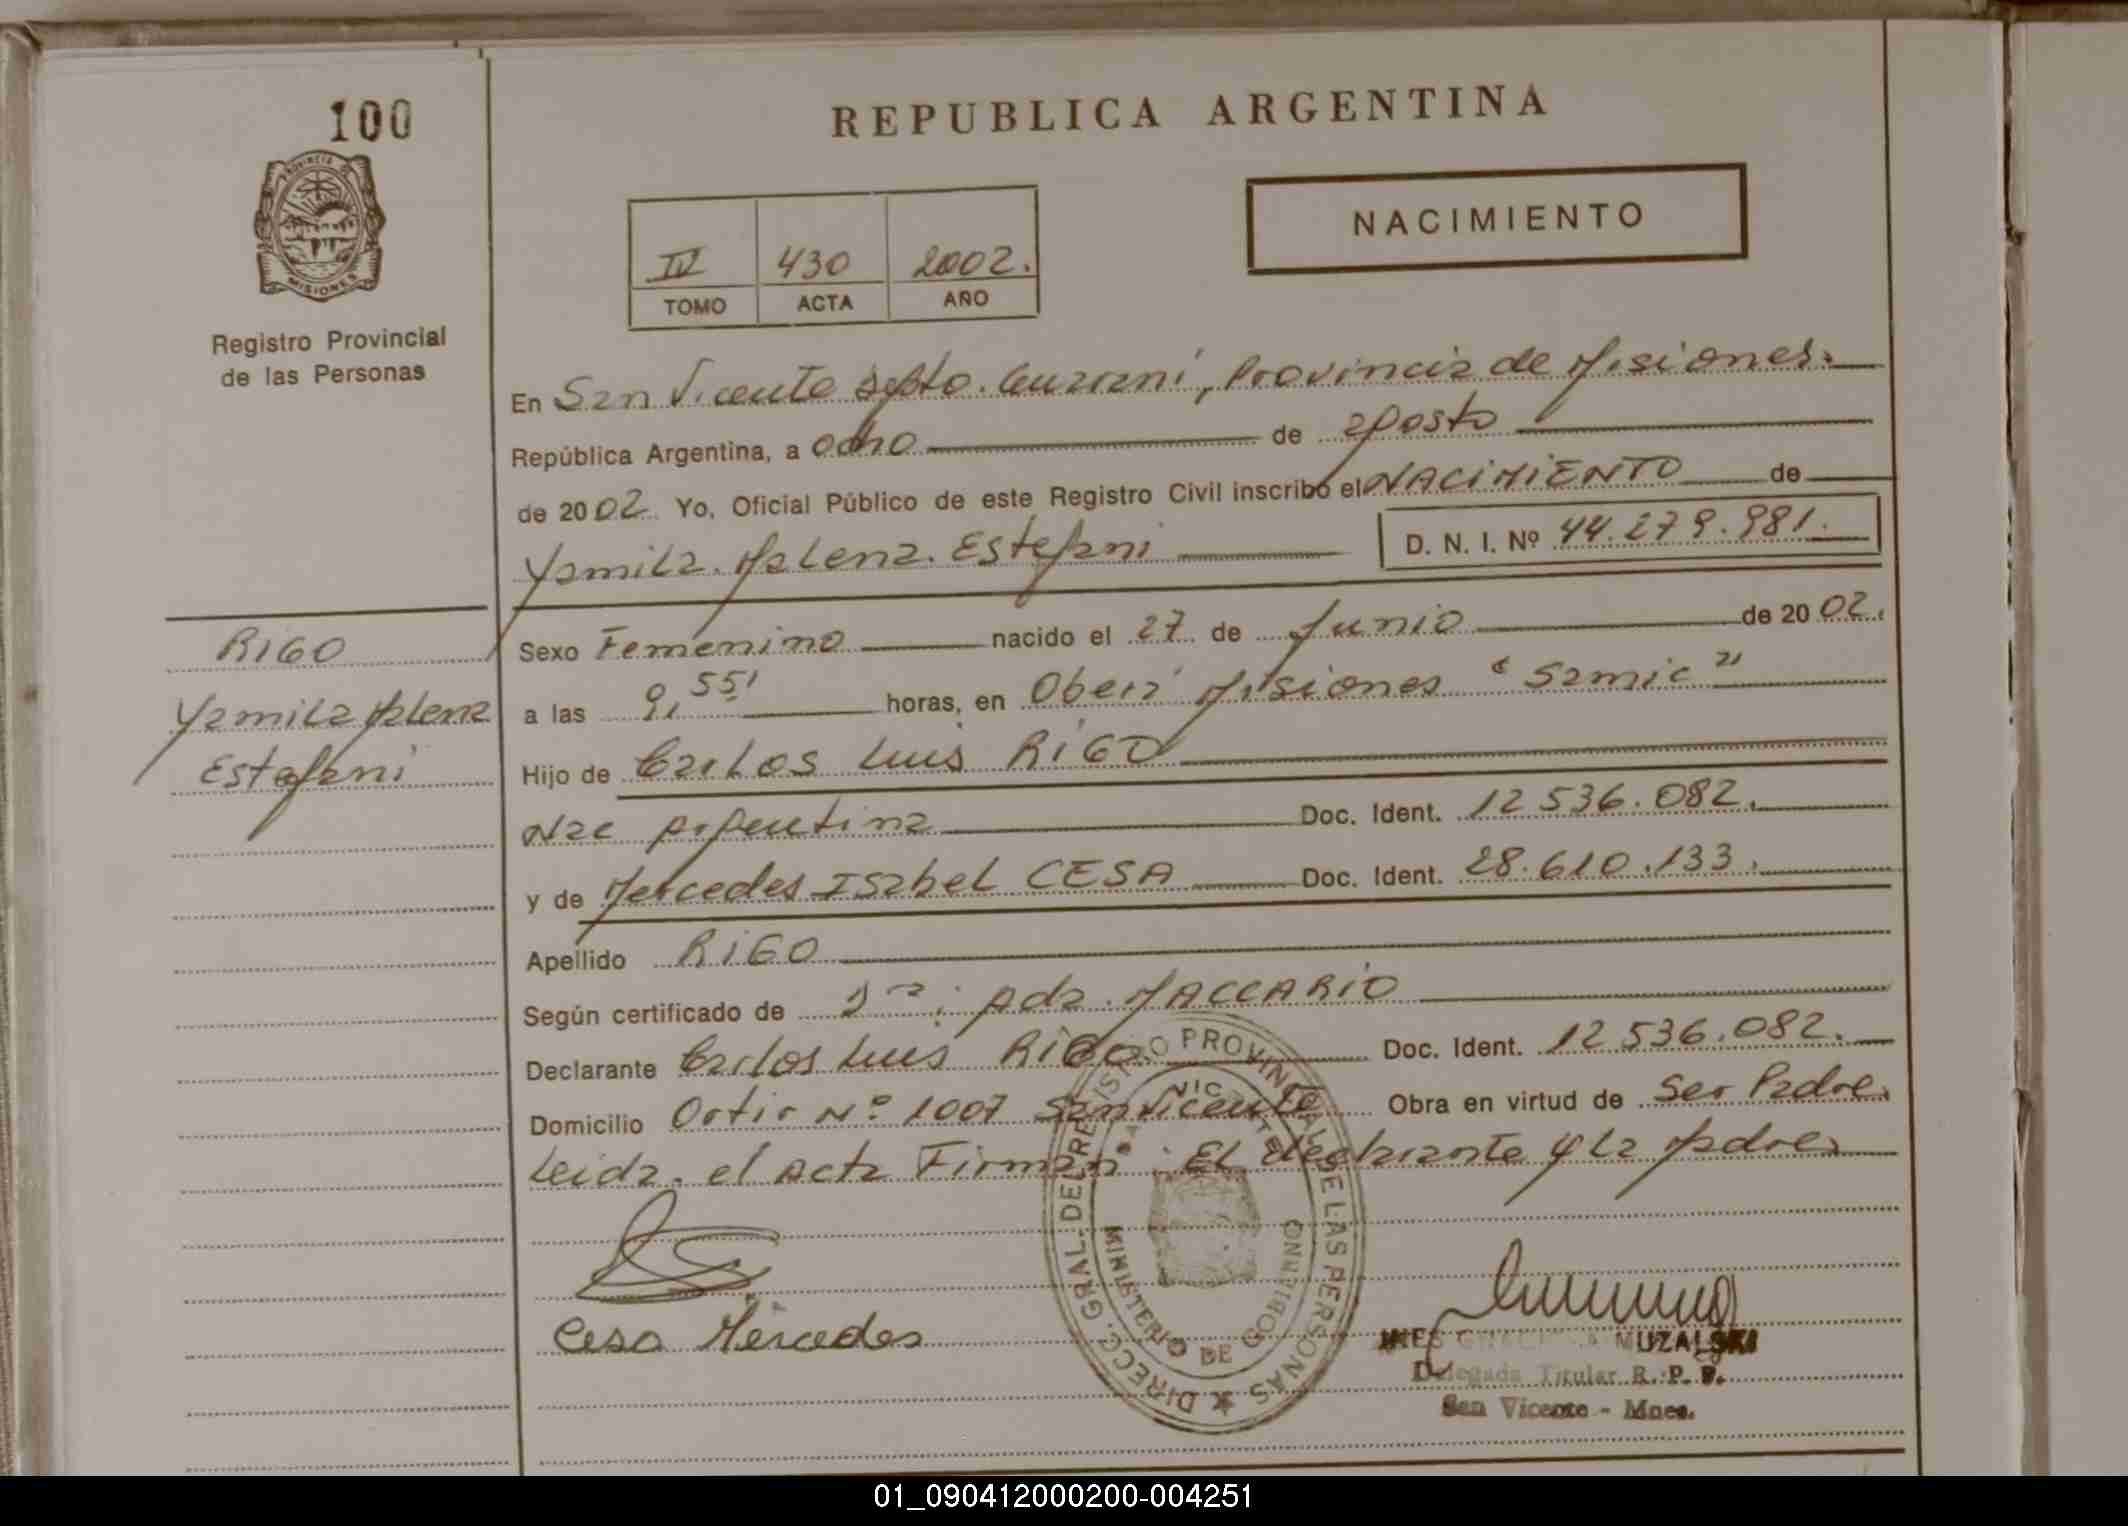 100
PROVINCIA DE
MISIONES
Registro Provincial
de las Personas
REPUBLICA ARGENTINA
NACIMIENTO
IV 430 2002.
TOMO ACTA AÑO
En San Vicente Dpto. Guaraní, Provincia de Misiones.
República Argentina, a ocho de agosto
de 2002 Yo, Oficial Público de este Registro Civil inscribo el NACIMIENTO de
Yamila Malena Estefani D. N. I. Nº 44.279.981.
Sexo Femenino nacido el 27 de Junio de 2002.
a las 9,55' horas, en Oberá Misiones "Samic"
Hijo de Carlos Luis RIGO
Nac Argentina Doc. Ident. 12 536.082.
y de Mercedes Isabel CESA Doc. Ident. 28.610.133.
Apellido RIGO
Según certificado de Dra: Ada MACCARIO
Declarante Carlos Luis RIGO Doc. Ident. 12 536.082.
Domicilio Nº 1007 San Vicente Obra en virtud de Ser Padre.
Leida el Acta Firman: El declarante y la Madre
RIGO
Yamila Malena
Estefani
Cesa Mercedes
DIRECC. GRAL. DEL REGISTRO PROVINCIAL DE LAS PERSONAS
MINISTERIO DE GOBIERNO
INES MUZALSKI
Delegada Titular R. P. P.
San Vicente - Mnes.
01_090412000200-004251